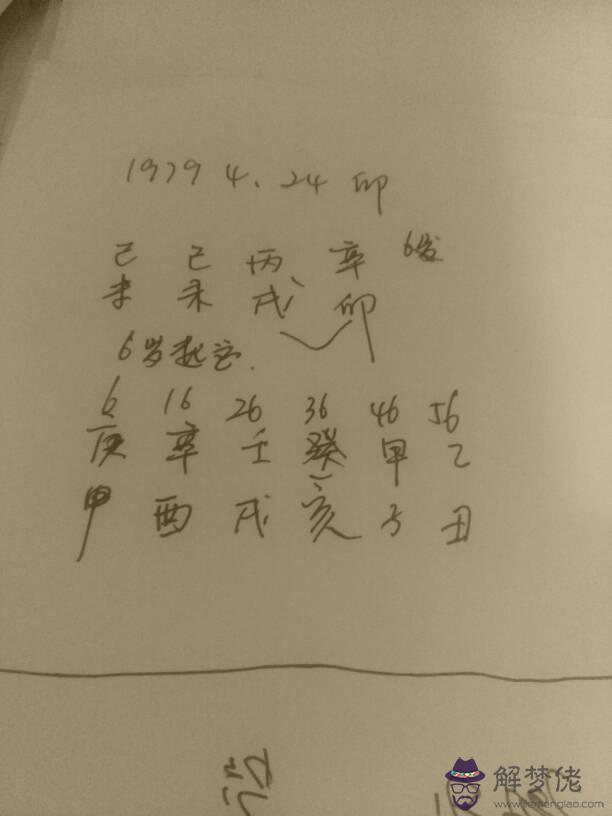 1979 4、24 卯
己 己 丙 辛 6岁
未 未 戌 卯
6岁起运.
6 16 26 36 46 56
庚 辛 壬 癸 甲 乙
申 酉 戌 亥 子 丑
解梦佬
www.jiemenglao.com